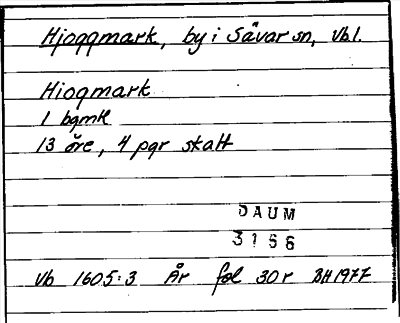 Hjoggmark, by i Sävar sn, Vbl.
Hiogmark
1 bgmk
13 öre, 4 pgr skatt
DAUM
3166
Vb 1605:3 År fol 30r BH 1977